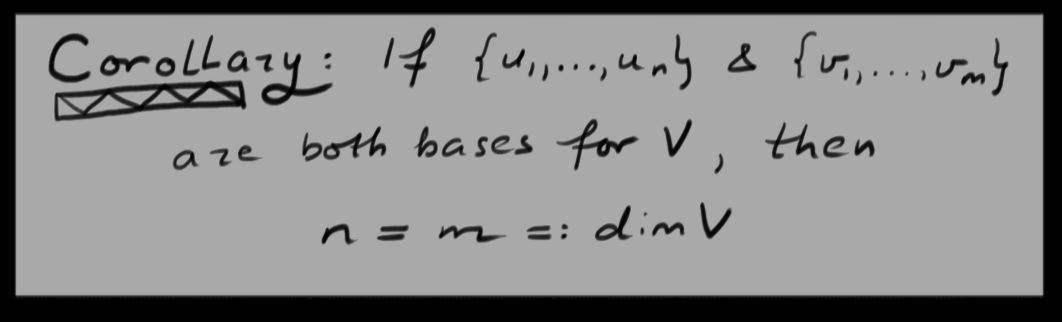 Corollary: If {u₁,...,uₙ} & {v₁,...,vₘ}
are both bases for V, then
n = m =: dim V